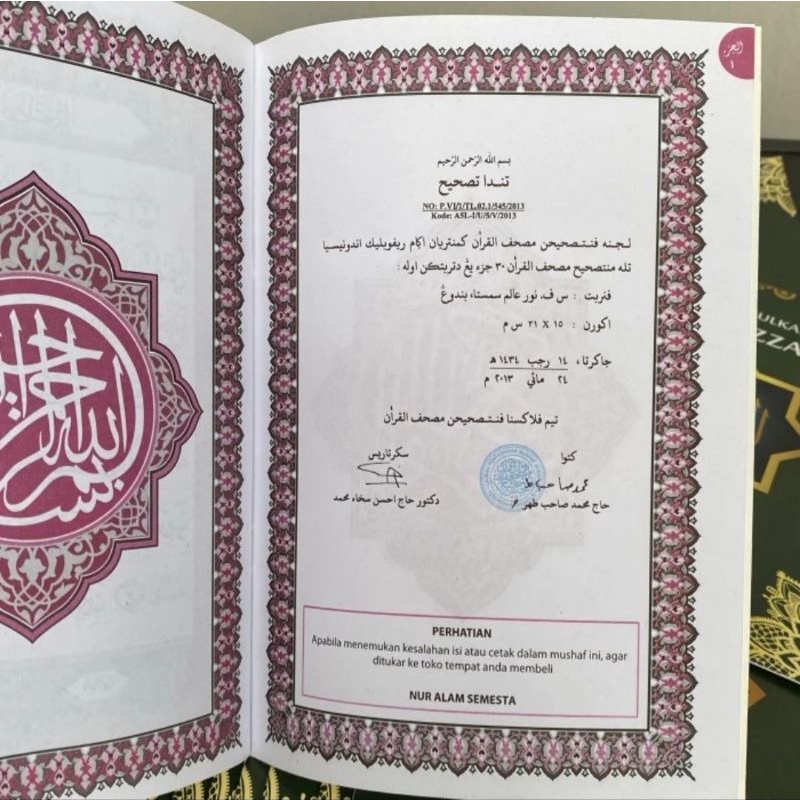 الجزء
١
بسم الله الرّحمن الرّحيم
تندا تصحيح
NO: P.VI/I/TL.02.1/545/2013
Kode: ASL-I/U/S/V/2013
لجنه فنتصحيحن مصحف القرأن كمنتريان اڬام ريفوبليك اندونيسيا
تله منتصحيح مصحف القرأن ٣٠ جزء يڠ دتربتكن اوله :
فنربت : س ف. نور عالم سمستا، بندوڠ
اكورن : ١٥ X ٢١ س م
جاكرتاء ، ١٤ رجب ١٤٣٤ ه
٢٤ مائي ٢٠١٣ م
تيم فلاكسنا فنتصحيحن مصحف القرأن
كتوا
سكرتاريس
حاج محمد صاحب طهر
دكتور حاج احسن سخاء محمد
PERHATIAN
Apabila menemukan kesalahan isi atau cetak dalam mushaf ini, agar
ditukar ke toko tempat anda membeli
NUR ALAM SEMESTA
ULKA
ZZA